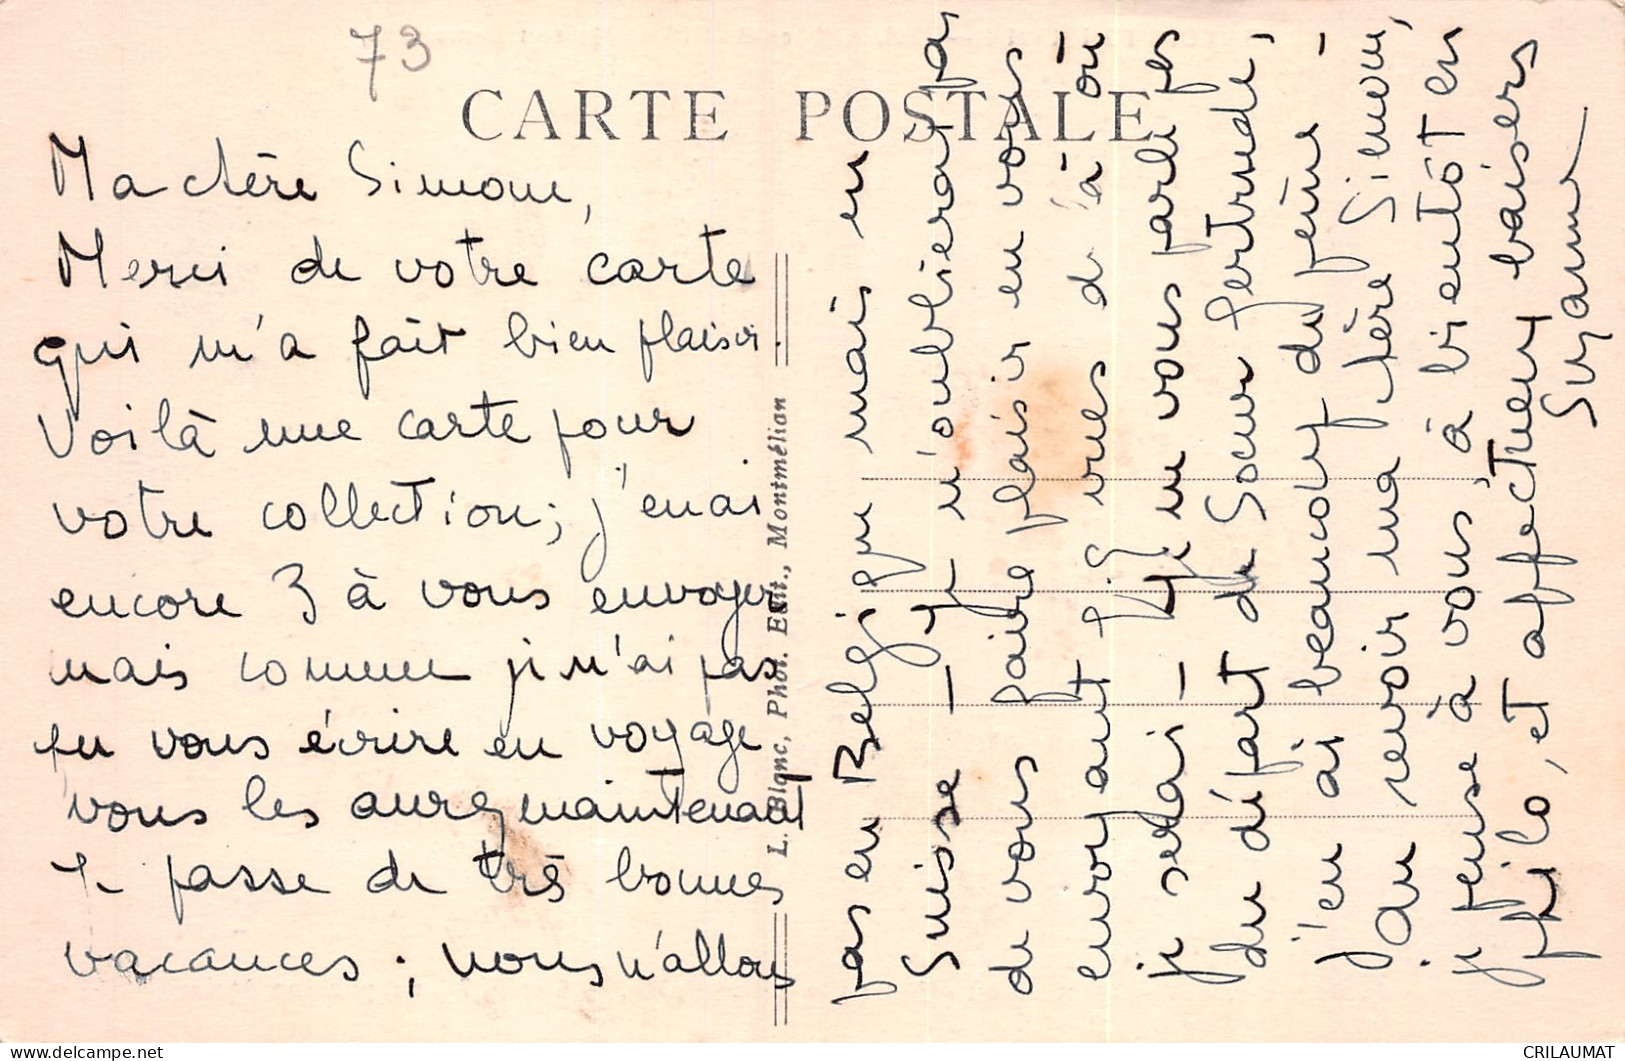 73
CARTE POSTALE
Ma chère Simone,
Merci de votre carte
qui m'a fait bien plaisir.
Voilà une carte pour
votre collection; j'en ai
encore 3 à vous envoyer
mais comme je n'ai pas
pu vous écrire en voyage
vous les aurez maintenant
Je passe de très bonnes
vacances; nous n'allons
L. Blanc, Phot. Edit., Montmélian
pas en Belgique mais en
Suisse — Je n'oublierai pas
de vous faire plaisir en vous
envoyant des vues de là où
je serai — Je ne vous parle pas
du départ de Soeur Gertrude,
j'en ai beaucoup de peine —
Au revoir ma chère Simone,
je pense à vous, à bientôt en
philo, et affectueux baisers
Suzanne
CRILAUMAT